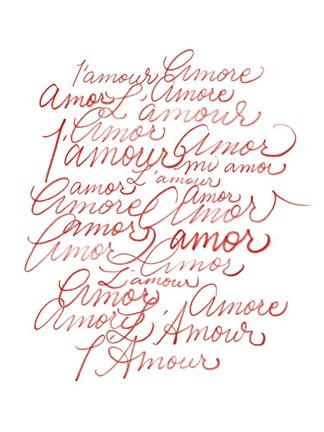 l'amour Amore
Amor L'Amore
L'amour
Amor
l'amour Amor
mi amor
L'amour
amor Amor
Amore Amor
Amor L'amor
Amor Amor
L'amour
Amor Amore
Amor L'Amour
l'Amour